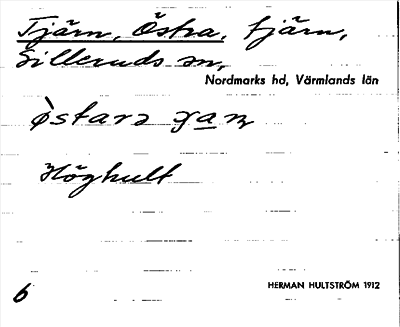 Tjärn, Östra, tjärn,
Silleruds sn,
Nordmarks hd, Värmlands län
Höghult
6
HERMAN HULTSTRÖM 1912